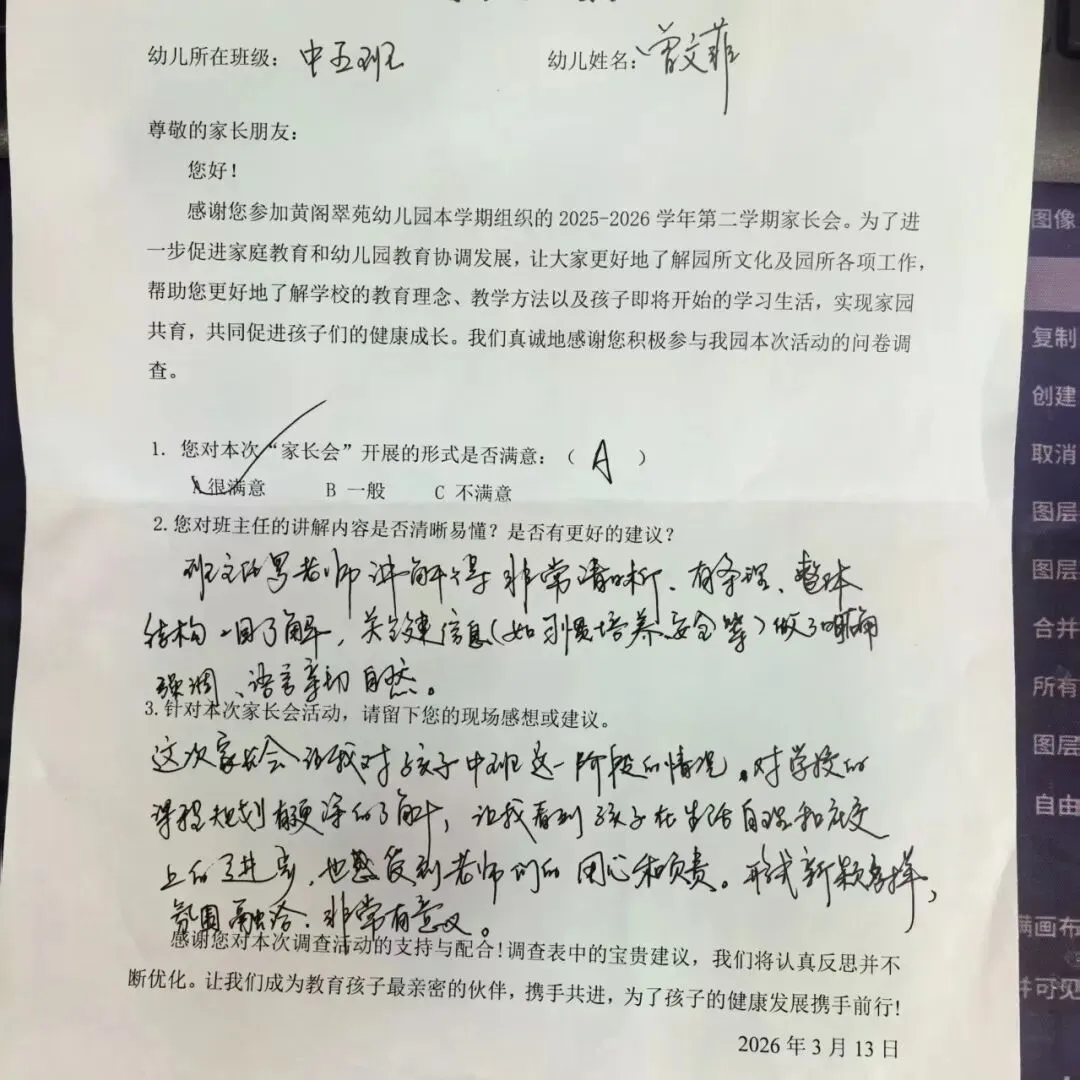 幼儿所在班级：中五班
幼儿姓名：曾文菲
尊敬的家长朋友：
您好！
感谢您参加黄阁翠苑幼儿园本学期组织的 2025-2026 学年第二学期家长会。为了进
一步促进家庭教育和幼儿园教育协调发展，让大家更好地了解园所文化及园所各项工作，
帮助您更好地了解学校的教育理念、教学方法以及孩子即将开始的学习生活，实现家园
共育，共同促进孩子们的健康成长。我们真诚地感谢您积极参与我园本次活动的问卷调
查。
1. 您对本次“家长会”开展的形式是否满意：（ A ）
A 很满意 B 一般 C 不满意
2.您对班主任的讲解内容是否清晰易懂？是否有更好的建议？
班主任老师讲解得非常清晰、有条理、整体
结构一目了解，关键信息（如习惯培养、安全等）做了明确
强调、语言亲切自然。
3.针对本次家长会活动，请留下您的现场感想或建议。
这次家长会让我对孩子中班这一阶段的情况，对学校的
课程规划有更深的了解，让我看到孩子在生活自理和社交
上的进步，也感受到老师们的用心和负责。形式新颖多样，
氛围融洽、非常有意义。
感谢您对本次调查活动的支持与配合！调查表中的宝贵建议，我们将认真反思并不
断优化。让我们成为教育孩子最亲密的伙伴，携手共进，为了孩子的健康发展携手前行！
2026 年 3 月 13 日
图像
复制
创建
取消
图层
图层
合并
所有
图层
自由
满画布
并可见